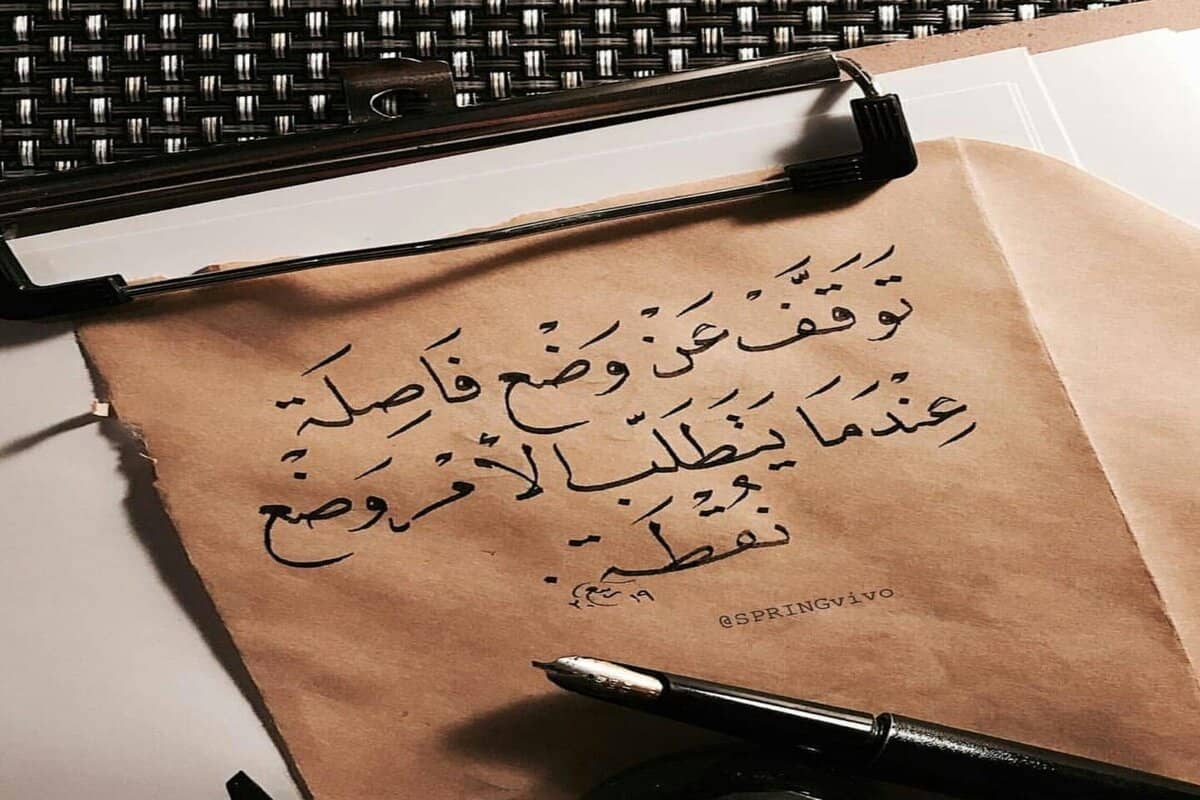 تَوَقَّفْ عَنْ وَضْعِ فَاصِلَة
عِنْدَمَا يَتَطَلَّب الأَمْر وَضْع
نُقْطَة.
@SPRINGvivo